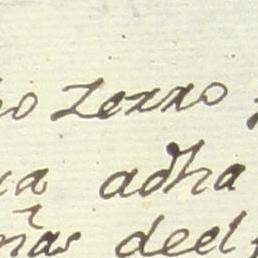 ho Zerro
ua adha
ñas deel